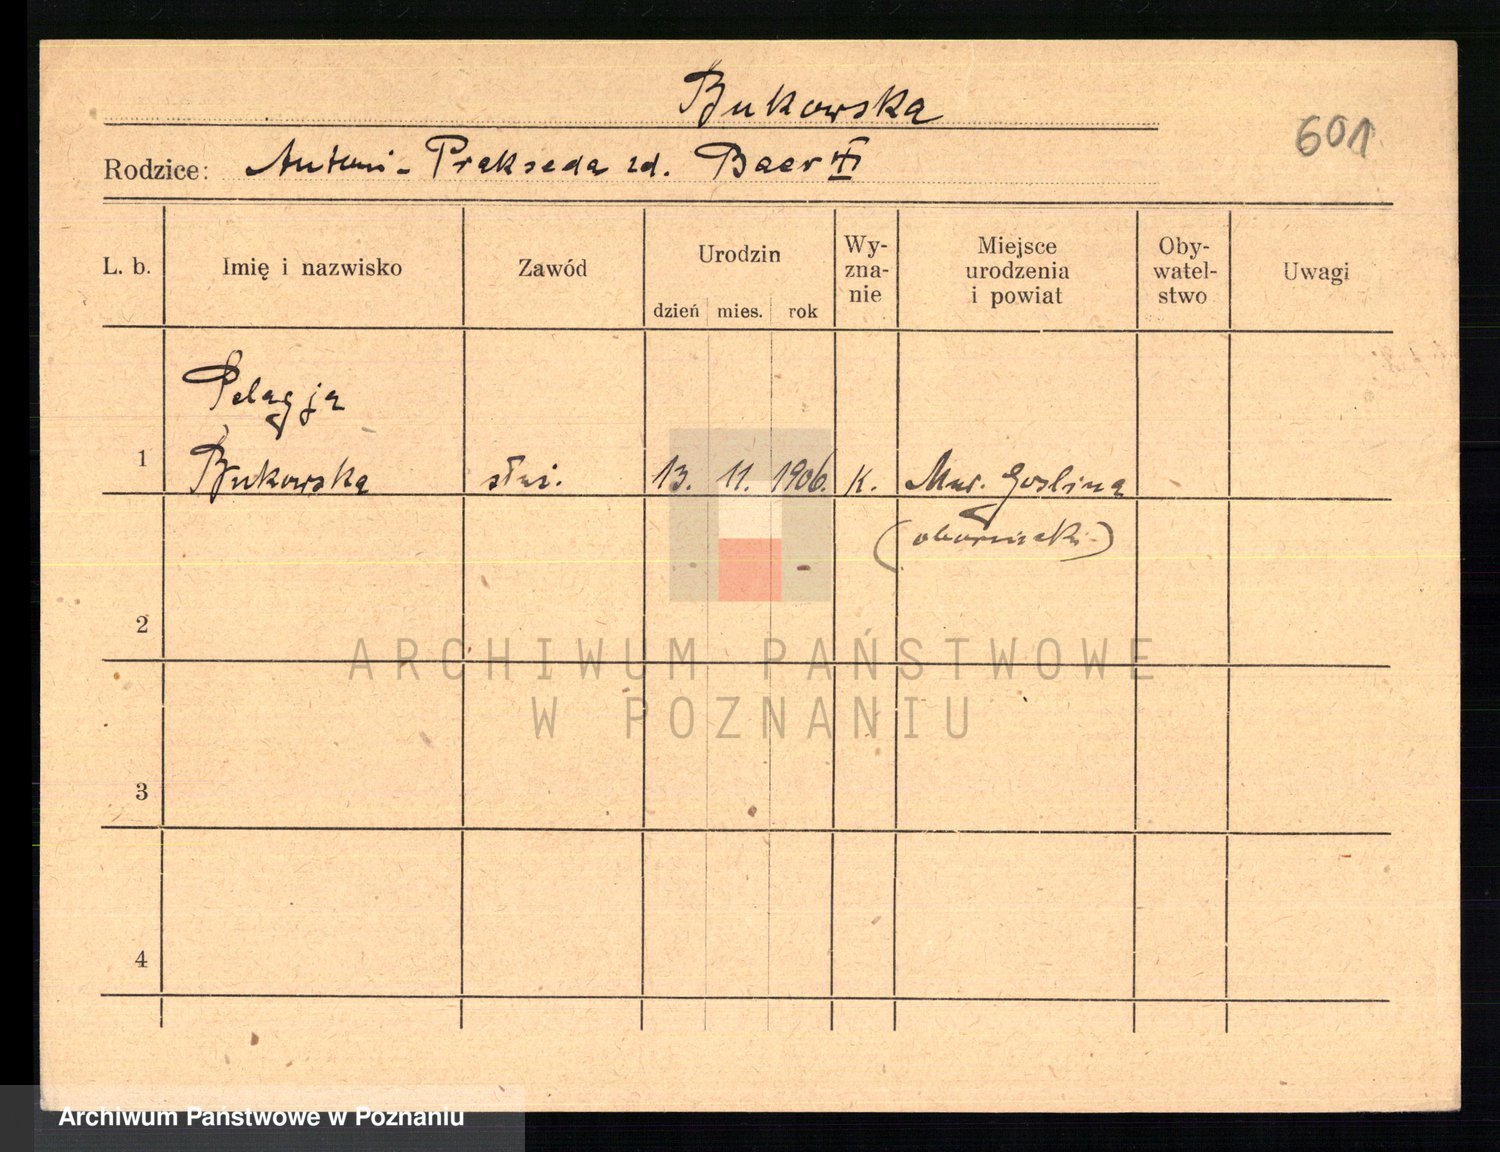 Bukowska
601
Rodzice: Antoni - Prakseda zd. Baer
L. b. Imię i nazwisko Zawód Urodzin dzień mies. rok Wy-zna-nie Miejsce urodzenia i powiat Oby-watel-stwo Uwagi
Pelagja
1 Bukowska służ. 13. 11. 1906. K. Mur. Goślina
(obornicki)
2
ARCHIWUM PAŃSTWOWE
W POZNANIU
3
4
Archiwum Państwowe w Poznaniu